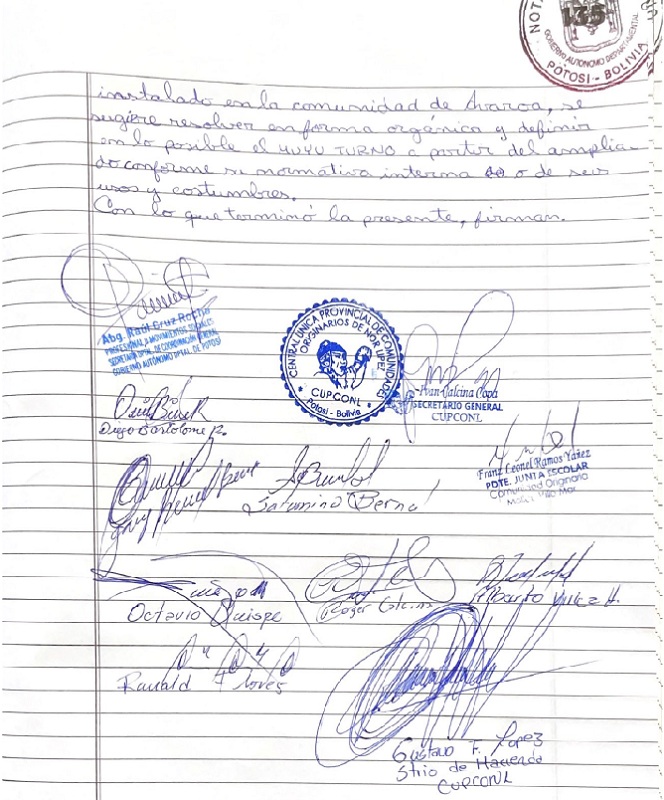 NOTA
135
GOBIERNO AUTÓNOMO DEPARTAMENTAL
POTOSI - BOLIVIA
instalado en la comunidad de Avaroa, se
sugiere resolver en forma orgánica y definir
en lo posible el MUYU TURNO a partir del amplia-
do conforme su normativa interna o de sus
usos y costumbres.
Con lo que terminó la presente, firman.
Abg. Raúl Cruz Rocha
PROFESIONAL MOVIMIENTOS SOCIALES
SECRETARIA DPTAL. DE COORDINACIÓN GENERAL
GOBIERNO AUTÓNOMO DPTAL. DE POTOSI
CENTRAL UNICA PROVINCIAL DE COMUNIDADES
ORIGINARIOS DE NOR LIPEZ
CUPCONL
Potosi - Bolivia
Ivan Calcina Copa
SECRETARIO GENERAL
CUPCONL
Diego Bartolome R.
Franz Leonel Ramos Yañez
PDTE. JUNTA ESCOLAR
Comunidad Originaria
Saturnino Bernal
Octavio Quispe
Roger Calcina
Alberto
Ranald Flores
Gustavo F. Lopez
Strio de Hacienda
CUPCONL